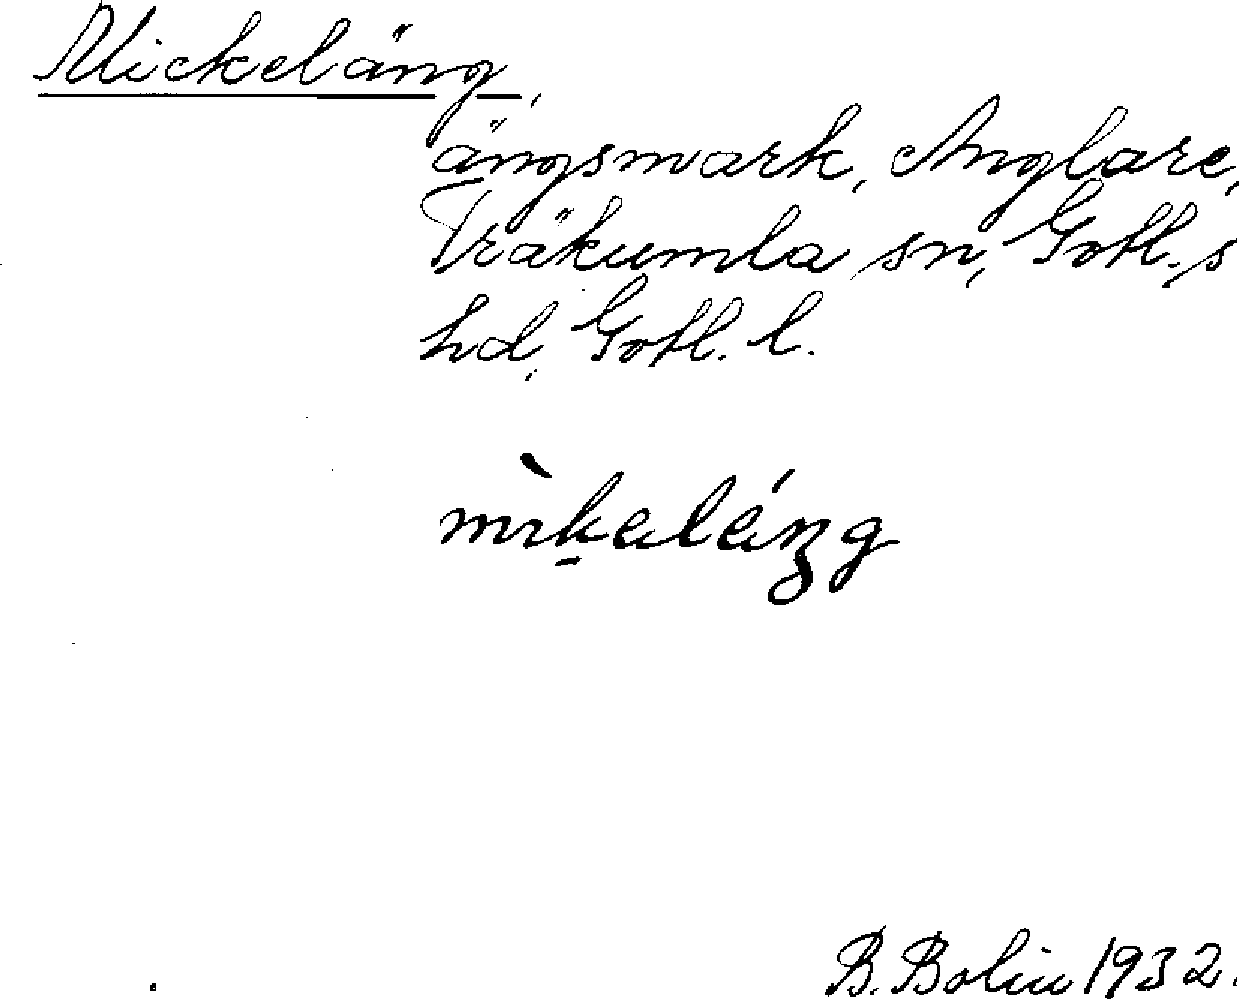 Mickeläng,
ängsmark, Anglare,
Träkumla sn, Gotl.s
hd, Gotl. l.
B. Bolin 1932.